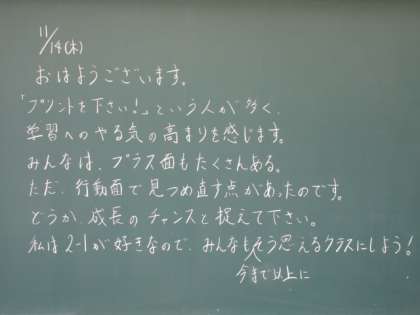 11/14(木)
おはようございます。
「プリントを下さい!」という人が多く、
学習へのやる気の高まりを感じます。
みんなは、プラス面もたくさんある。
ただ、行動面で見つめ直す点があったのです。
どうか、成長のチャンスと捉えて下さい。
私は2-1が好きなので、みんなもそう思えるクラスにしよう!
今まで以上に